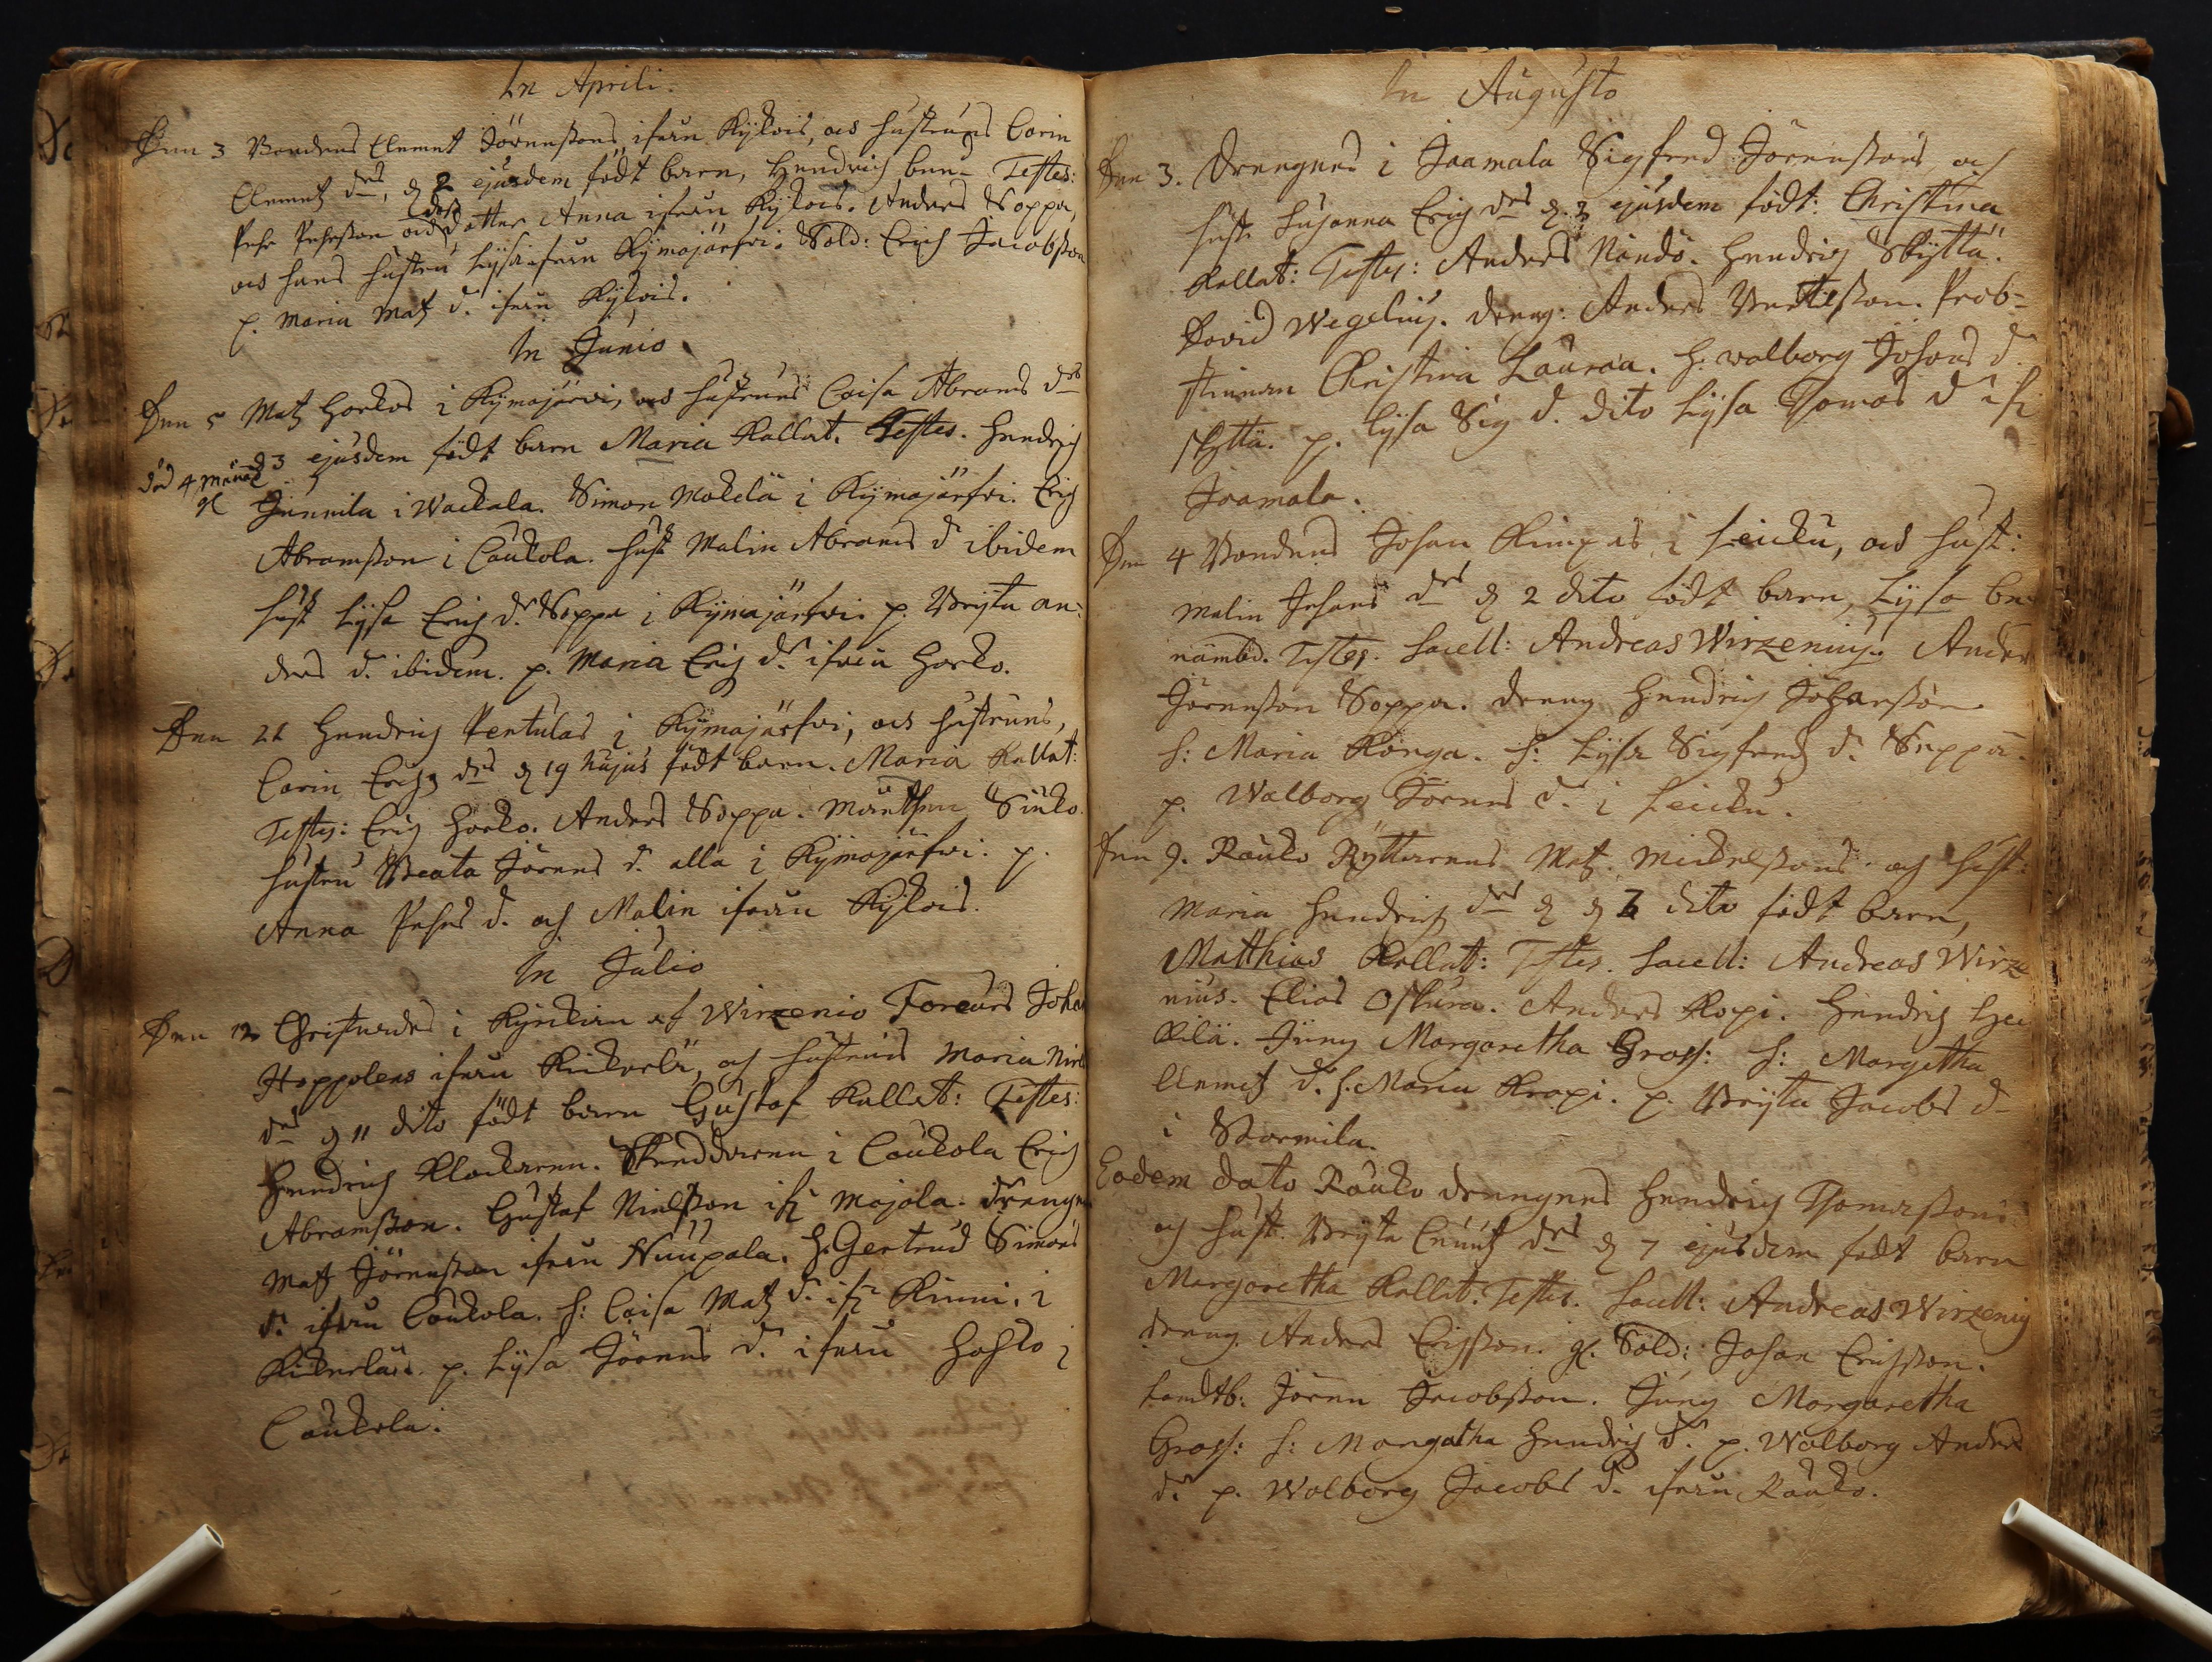 In Aprili.
Den 3 Bondens Clemet Jörenssons ifrån Kÿlois, och hustruns Carin
Clemetz dr, d 2 ejusdem födt barn, Hendrich ben. Testes:
Pehr Pehrsson och dess dotter Anna ifrån Kÿlois. Anders Soppa,
och hans hustru Lijsa ifrån Kÿmajärfwi. Sold: Erich Jacobsson
p. Maria Matz d. ifrån Kÿlois.
In Junio
Den 5 Matz Horkos i Kÿmajärwi, och hustruns Caisa Abrams dr
d 3 ejusdem födt barn Maria Kallat. Testes. Hendrich
död 4 månad gl
Junnila i Wackala. Simon Mäkelä i Kÿmajärfwi. Erich
Abramsson i Caukola. Hust Malin Abrams dr ibidem
Hust Lijsa Erichs dr Soppa i Kÿmajärfwi. p. Brÿta An-
ders d. ibidem. p. Maria Erichs dr ifrån Horko.
Den 22 Hendrich Pentulas i Kÿmajärfwi, och hustruns,
Carin Erichs dr d 19 hujus födt barn. Maria Kallat:
Testes: Erich Horko. Anders Soppa. Sinko.
hustru Beata Jörens d. alla i Kÿmajärfwi. p.
Anna Pehrs d. och Malin ifrån Kÿlois.
In Julio
Den 12 Christnades i Kÿrckian af Wirzenio Johan
Hoppolens ifrån Kickerlä, och hustruns Maria
dr d 11 dito födt barn Gustaf Kallat: Testes:
Hendrich Klockaren. Skreddaren i Caukola Erich
Abramsson. Gustaf Nielsson ifr Majola. drengen
Matz Jörensson ifrån Nuupala. H. Gertrud Simons
d. ifrån Caukola. H: Caisa Matz d. ifr Rinni. i
Kickerlä. p. Lÿsa Jörens d. ifrån Hohko i
Caukola.
In Augusto
Den 3. Drengens i Joamala Sigfred Jörenssons och
hust Susanna Erichs dr d. 2 ejusdem födt: Christina
Kallat: Testes: Anders Nändö. Hendrich Skÿttä.
David Wegelius. dreng: Anders Bertilsson. Prob-
stinnan Christina Lauraa. H. Walborg Johans d.
Skÿttä. p. Lÿsa Sig d. dito Lÿsa Tomas d ifr
Joamala.
Den 4 Bondens Johan Kimpas i Leicku, och hust:
Malin Johans dr d 2 dito födt barn, Lÿsa be-
nämbd. Testes. Sacell: Andreas Wirzenius. Anders
Jörensson Soppa. dreng Hendrich Johansson
h: Maria Kånga. h: Lÿsa Sigfredz d. Seppä.
p. Walborg Jörens d. i Leicku.
Den 9. Rauko Rÿttarens Matz Mickelssons och hust:
Maria Hendrichs dr d 7 dito födt barn,
Matthias Kallat: Testes. Sacell: Andreas Wirze
nius. Elias Oskura. Anders Kropi. Hendrich Hei
kilä. Jung Margaretha Grass: h: Margetha
Clemetz d. h. Maria Kropi. p. Brÿta Jacobs d
i Stormila.
Eodem dato Rauko drengens Hendrich Thomassons
och hust. Brÿta Cnuutz dr d 7 ejusdem födt barn
Margaretha Kallat. Testes. Sacell: Andreas Wirzenig
dreng. Anders Erichsson. gl. Sold: Johan Erichsson.
Landtb: Jören Jacobsson. Jung Margaretha
Grass: h: Margatha Hendrichs d. p. Walborg Anders
d. p. Walborg Jacobs d. ifrån Rauko.